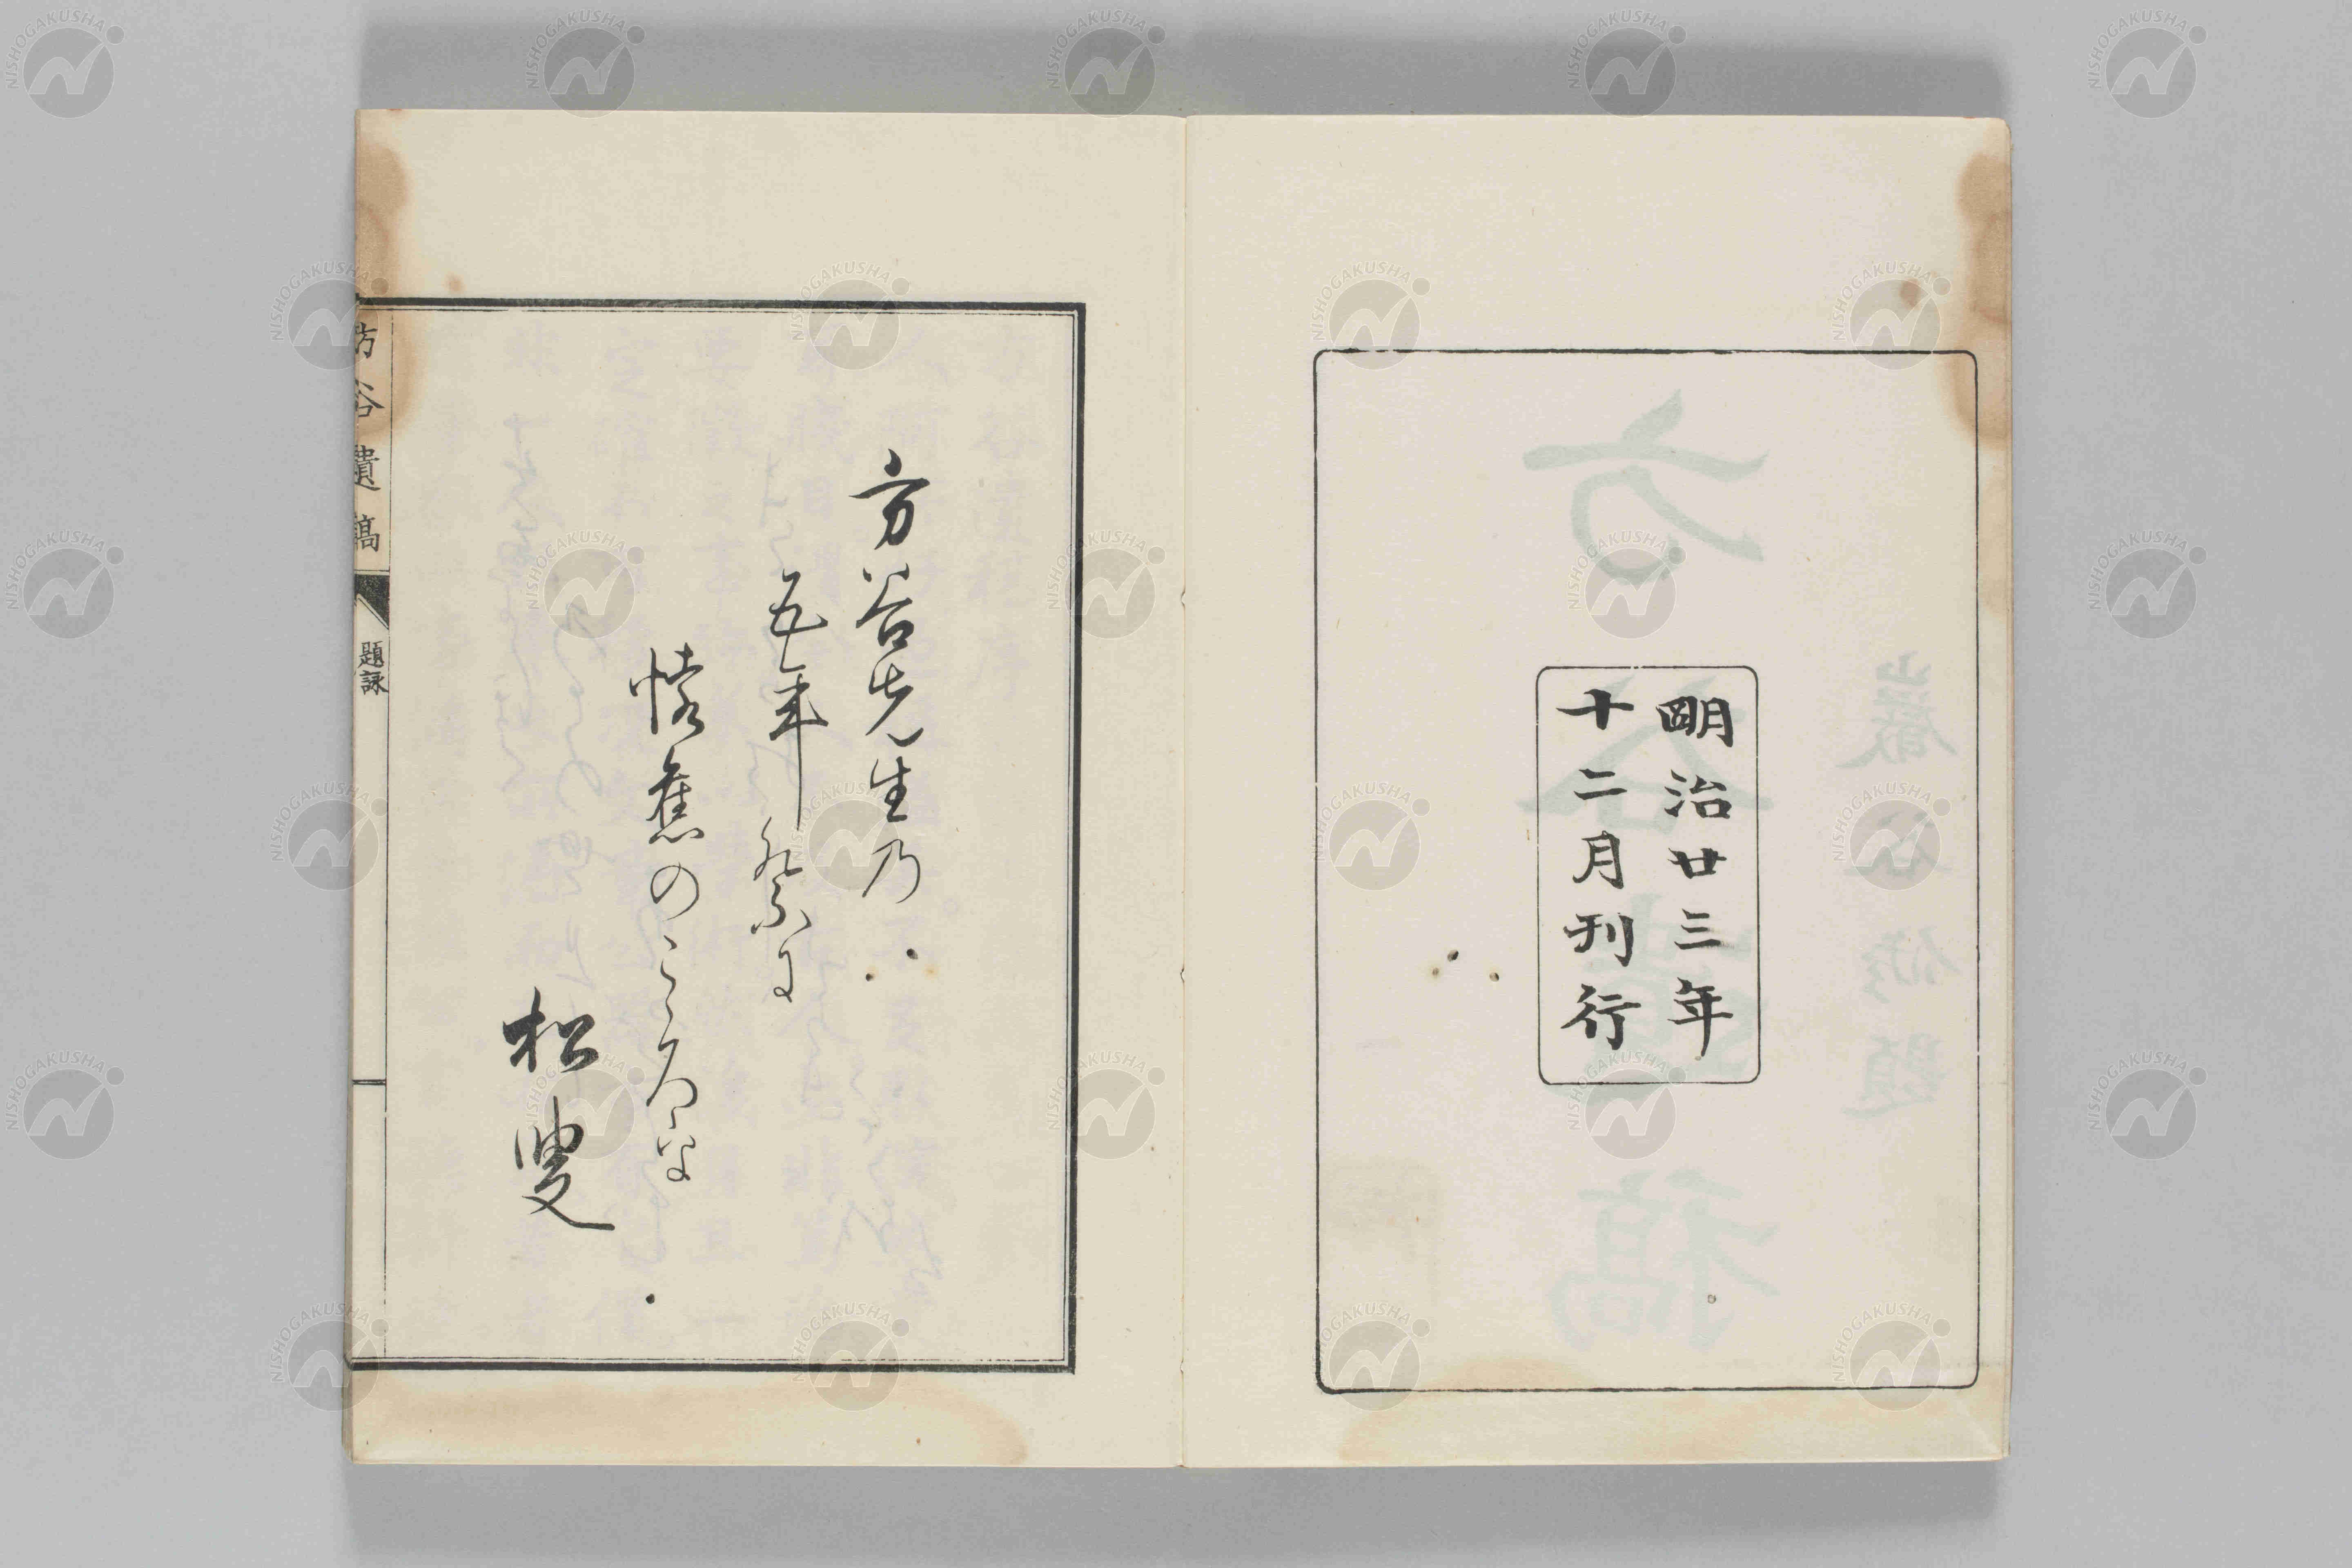 朙治廿三年
十二月刊行
方谷先生乃
五年祭に
懐舊のこゝろを
松叟
方谷遺稿
題詠
NISHOGAKUSHA